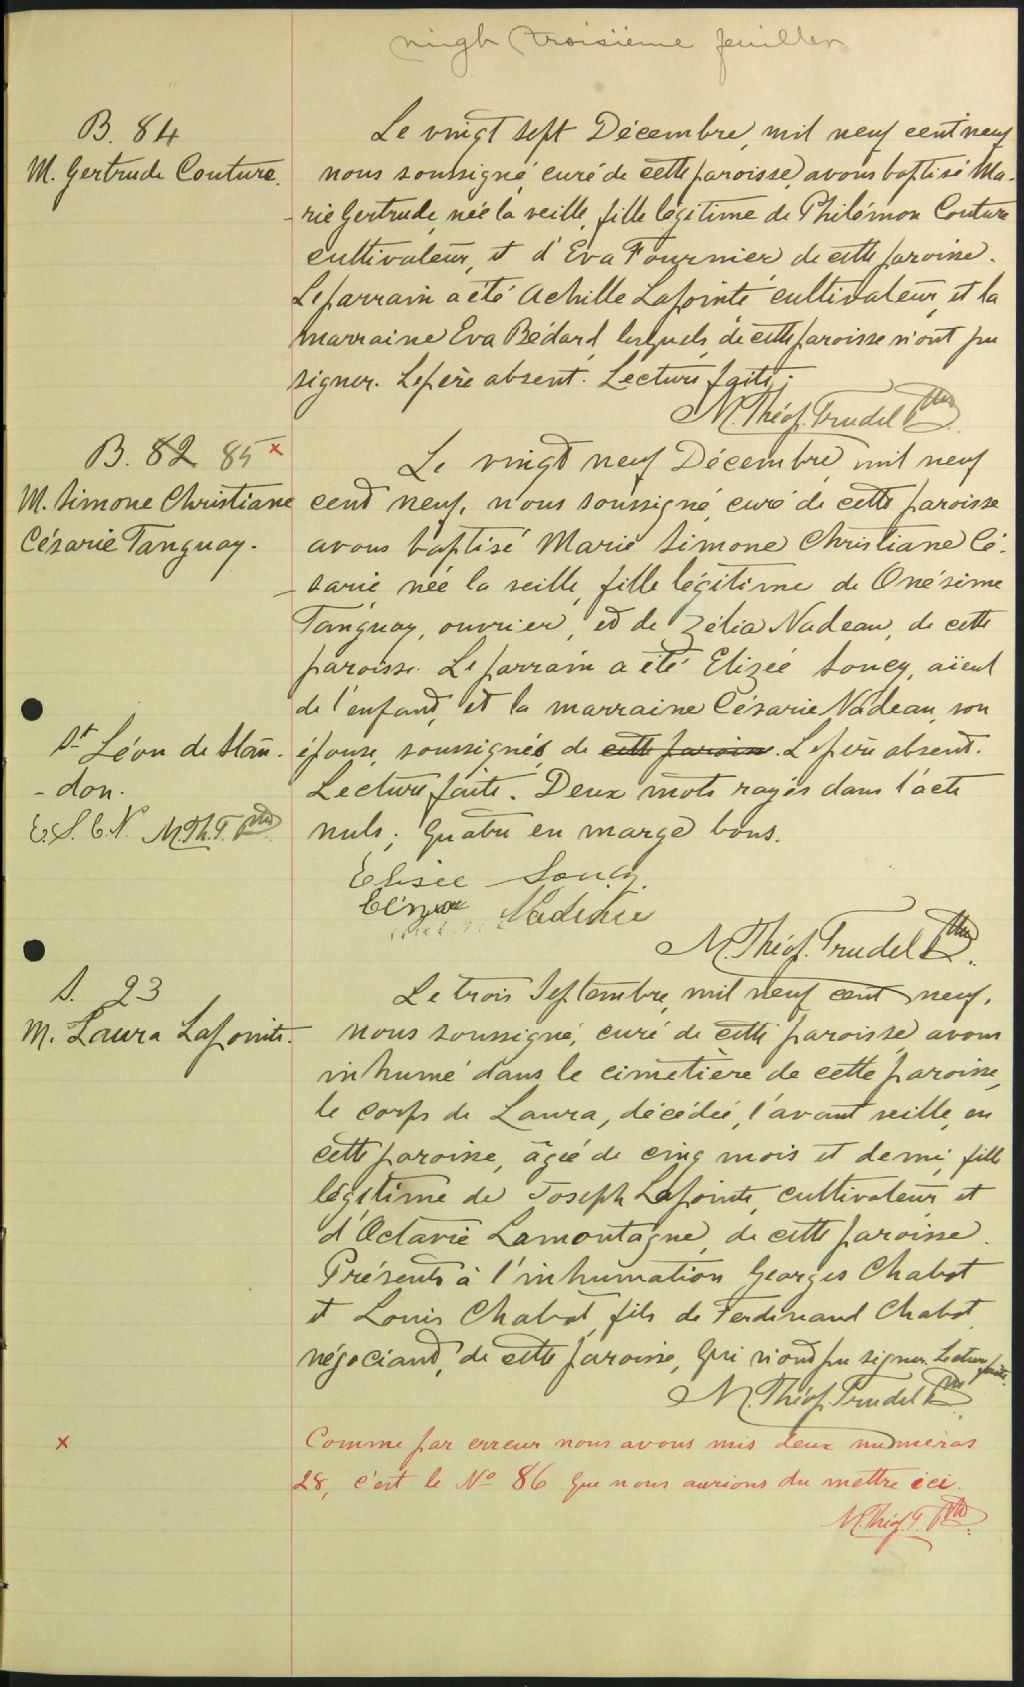 vingt troisième feuillet
B. 84
M. Gertrude Couture.
Le vingt sept Décembre, mil neuf cent neuf
nous soussigné, curé de cette paroisse, avons baptisé Ma-
-rie Gertrude, née la veille, fille légitime de Philémon Couture
cultivateur, et d'Eva Fournier de cette paroisse.
Le parrain a été Achille Lapointe cultivateur, et la
marraine Eva Bédard, lesquels, de cette paroisse n'ont pu
signer. Le père absent. Lecture faite.
M. Théop. Trudel Ptre
B. 82 85 x
M. Simone Christiane
Césarie Tanguay.
Le vingt neuf Décembre, mil neuf
cent neuf, nous soussigné, curé de cette paroisse
avons baptisé Marie Simone Christiane Cé-
-sarie née la veille, fille légitime de Onésime
Tanguay, ouvrier, et de Zélia Nadeau, de cette
paroisse. Le parrain a été Elizée Soucy, aïeul
de l'enfant, et la marraine Césarie Nadeau, son
épouse, soussignés, de cette paroisse. Le père absent.
Lecture faite. Deux mots rayés dans l'acte
nuls; Quatre en marge bons.
St Léon de Stan-
-don.
E.S. C.N. M.Th.T. Ptre
Elisée Soucy
Nadeau
M. Théop. Trudel Ptre.
S. 23
M. Laura Lapointe.
Le trois Septembre, mil neuf cent neuf,
nous soussigné, curé de cette paroisse avons
inhumé dans le cimetière de cette paroisse,
le corps de Laura, décédée, l'avant veille, en
cette paroisse, âgée de cinq mois et demi, fille
légitime de Joseph Lapointe, cultivateur, et
d'Octavie Lamontagne, de cette paroisse.
Présents à l'inhumation Georges Chabot
et Louis Chabot, fils de Ferdinand Chabot,
négociant, de cette paroisse, qui n'ont pu signer. Lecture faite.
M. Théop. Trudel Ptre
x
Comme par erreur nous avons mis deux numéros
28, c'est le No 86 que nous aurions du mettre ici.
M. Théop. T. Ptre.